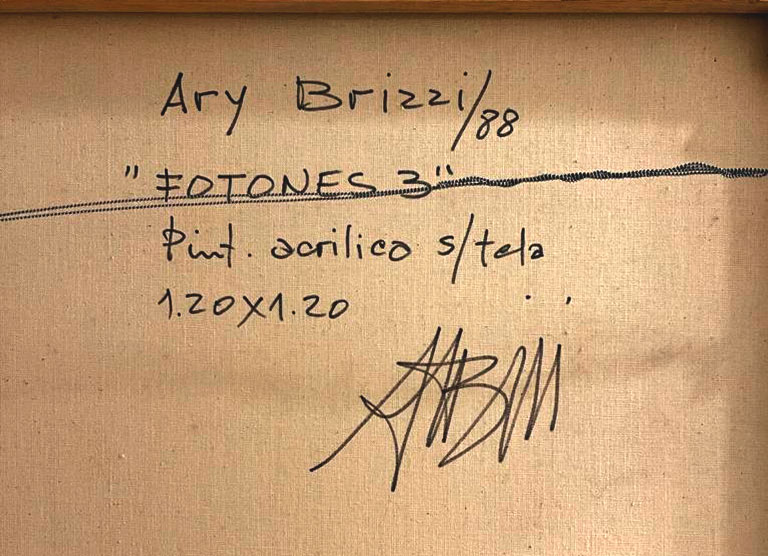 Ary Brizzi/88
"FOTONES 3"
Pint. acrilico s/tela
1.20X1.20